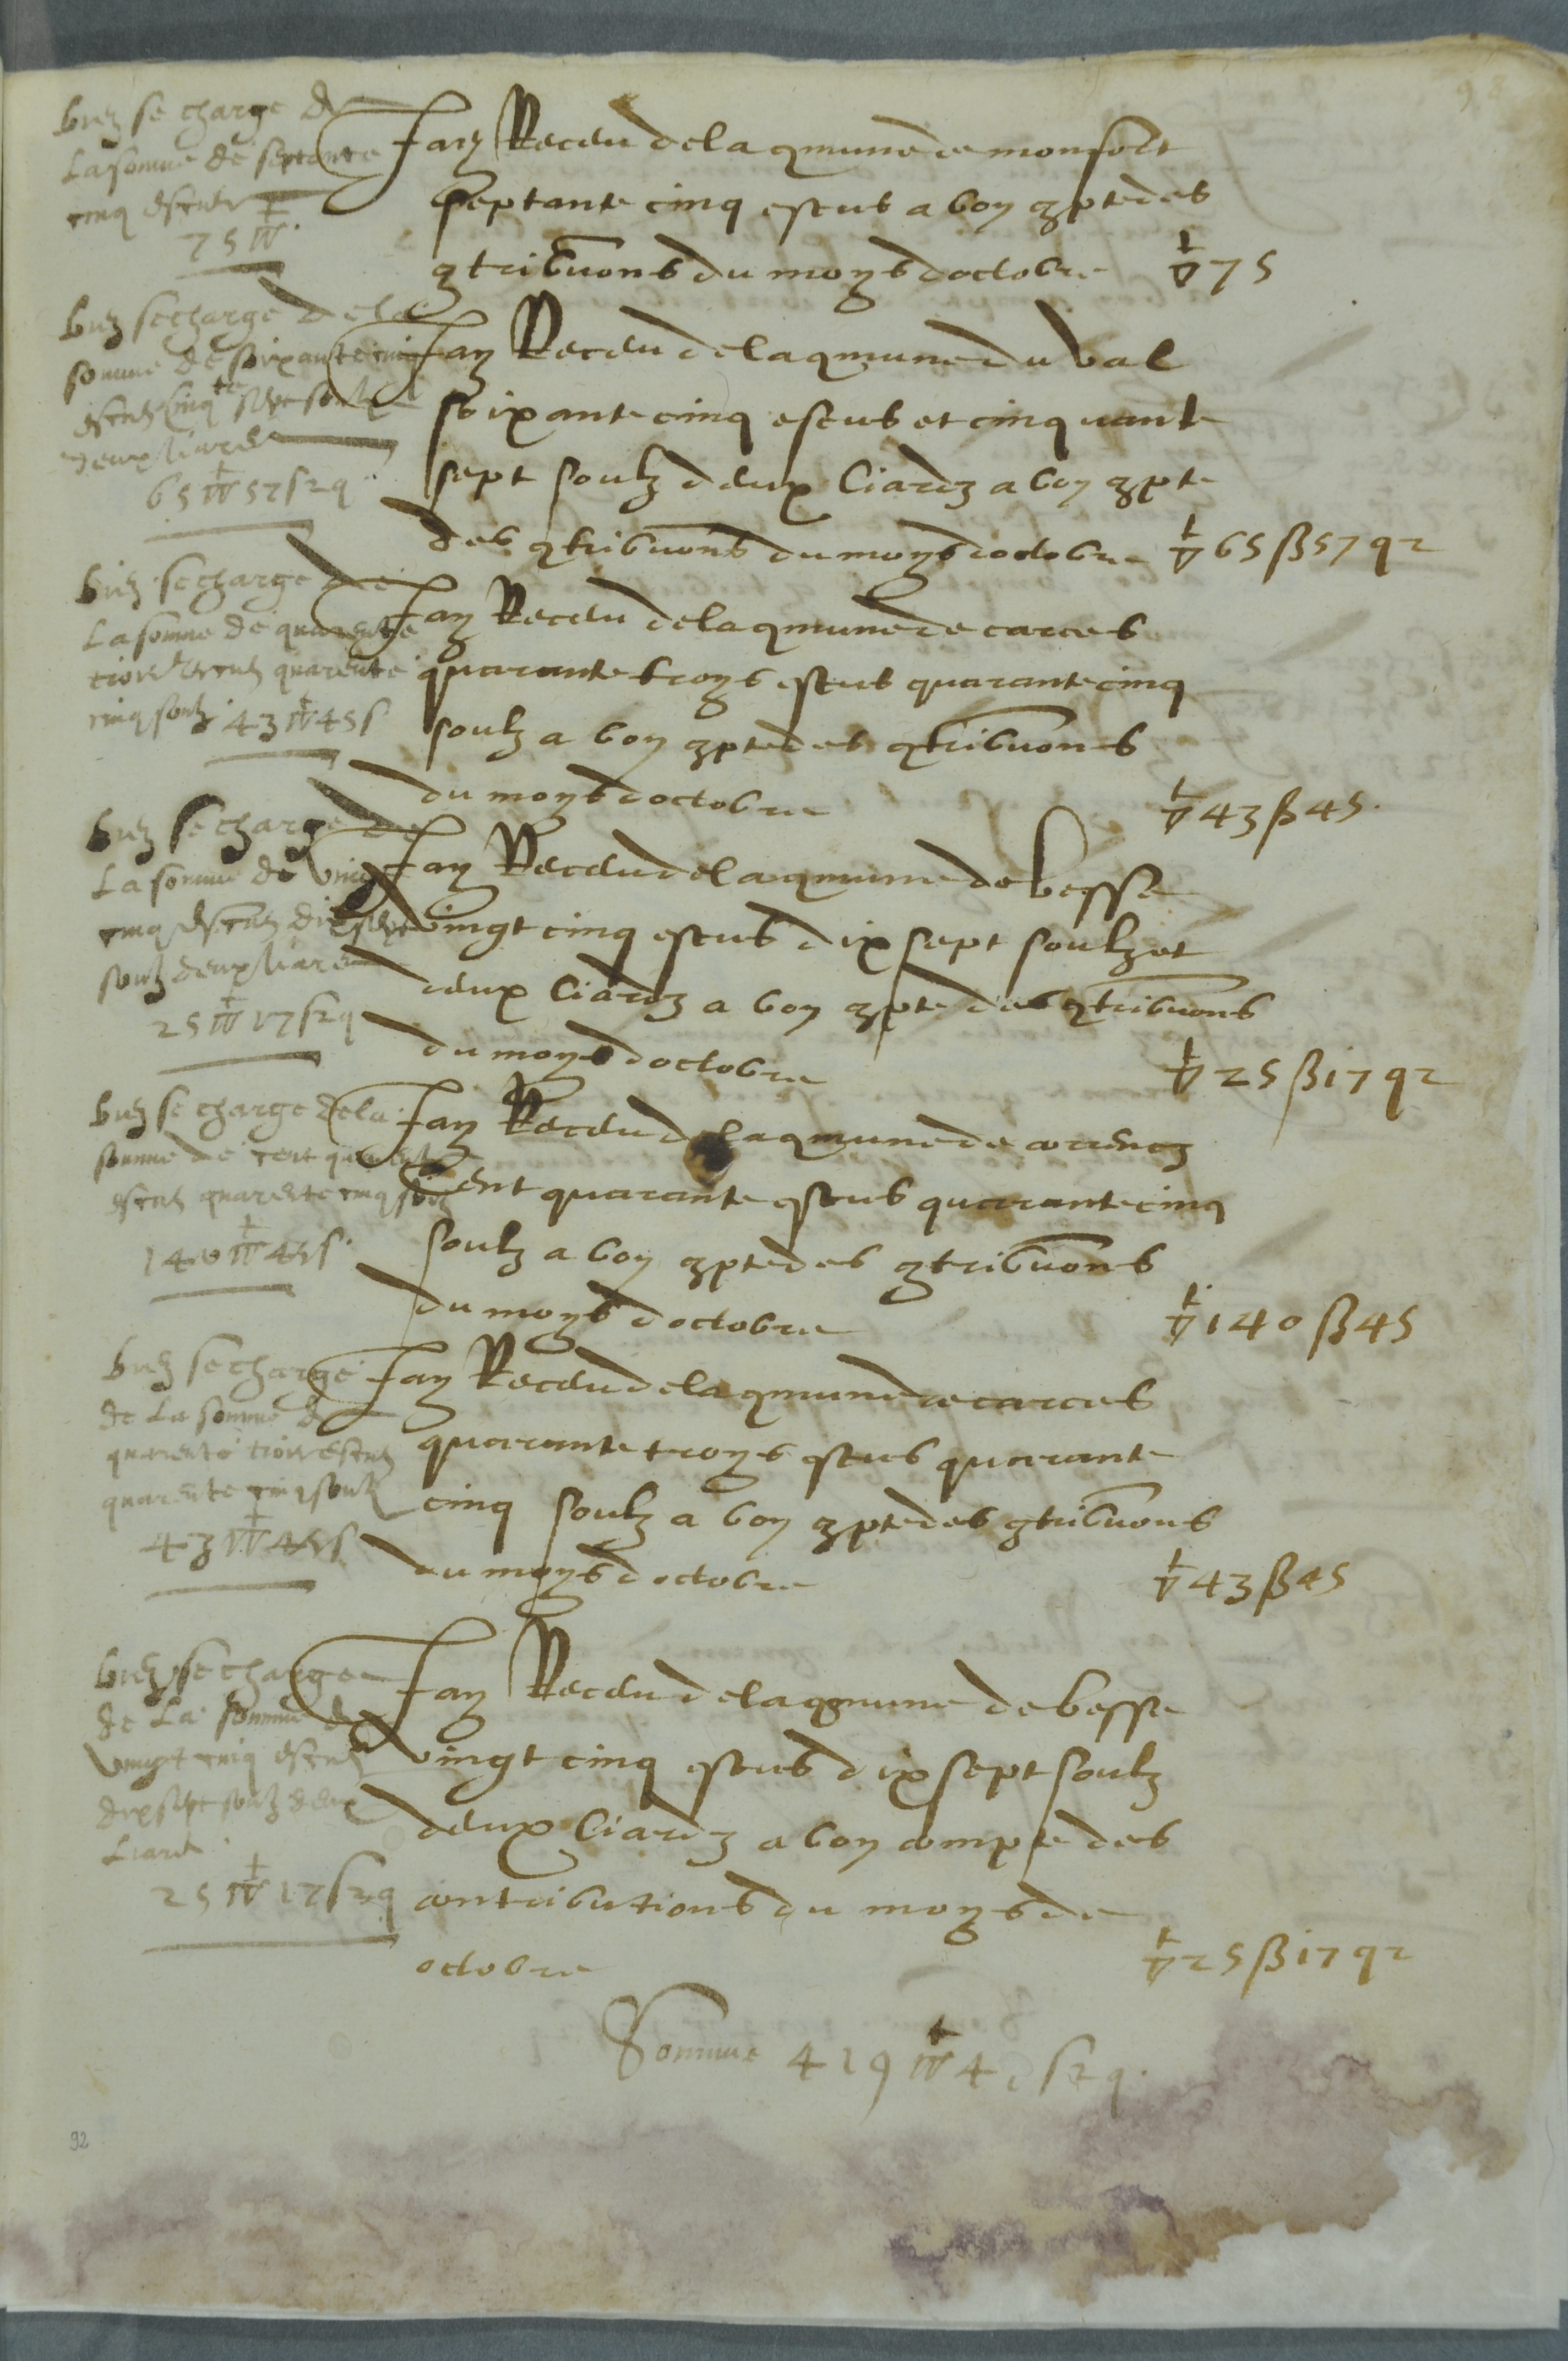 98
buez se charge de
La somme de septante
cinq escuz
75 ▽
Jay Receu de la qmune de monfort
septante cinq escus a bon qpte des
qtribuons du moys doctobre ▽ 75
buez se charge de la
somme de soixante cinq
escuz cinqte sept soulz
deux liardz
65 ▽ 57 s 2 q
Jay Receu de la qmune du val
soixante cinq escus et cinquante
sept soulz deux liardz a bon qpte
des qtribuons du moys doctobre ▽ 65 ß 57 q 2
buez se charge de
La somme de quarente
trois escuz quarente
cinq soulz 43 ▽ 45 s
Jay Receu de la qmune de carces
quarante troys escus quarante cinq
soulz a bon qpte des qtribuons
du moys doctobre ▽ 43 ß 45
buez se charge de
La somme de vingt
cinq escuz dix sept
soulz deux liardz
25 ▽ 17 s 2 q
Jay Receu de la qmune de besse
vingt cinq escus dix sept soulz et
deux liardz a bon qpte des qtribuons
du moys doctobre ▽ 25 ß 17 q 2
buez se charge de la
somme de cent quarente
escuz quarente cinq soulz
140 ▽ 45 s
Jay Receu de la qmune de correncz
Cent quarante escus quarante cinq
soulz a bon qpte des qtribuons
du moys doctobre ▽ 140 ß 45
buez se charge
de La somme de
quarente trois escuz
quarente cinq soulz
43 ▽ 45 s
Jay Receu de la qmune de carces
quarante troys escus quarante
cinq soulz a bon qpte des qtribuons
du moys doctobre ▽ 43 ß 45
buez se charge
de La somme de
vingt cinq escuz
dix sept soulz deux
Liardz
25 ▽ 17 s 2 q
Jay Receu de la qmune de besse
vingt cinq escus dix sept soulz
deux liardz a bon compte des
contributions du moys de
octobre ▽ 25 ß 17 q 2
Somme 419 ▽ s 2 q
92